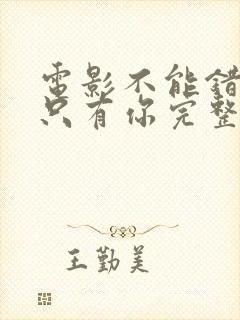 電影不能錯
只有你完整
王勤美